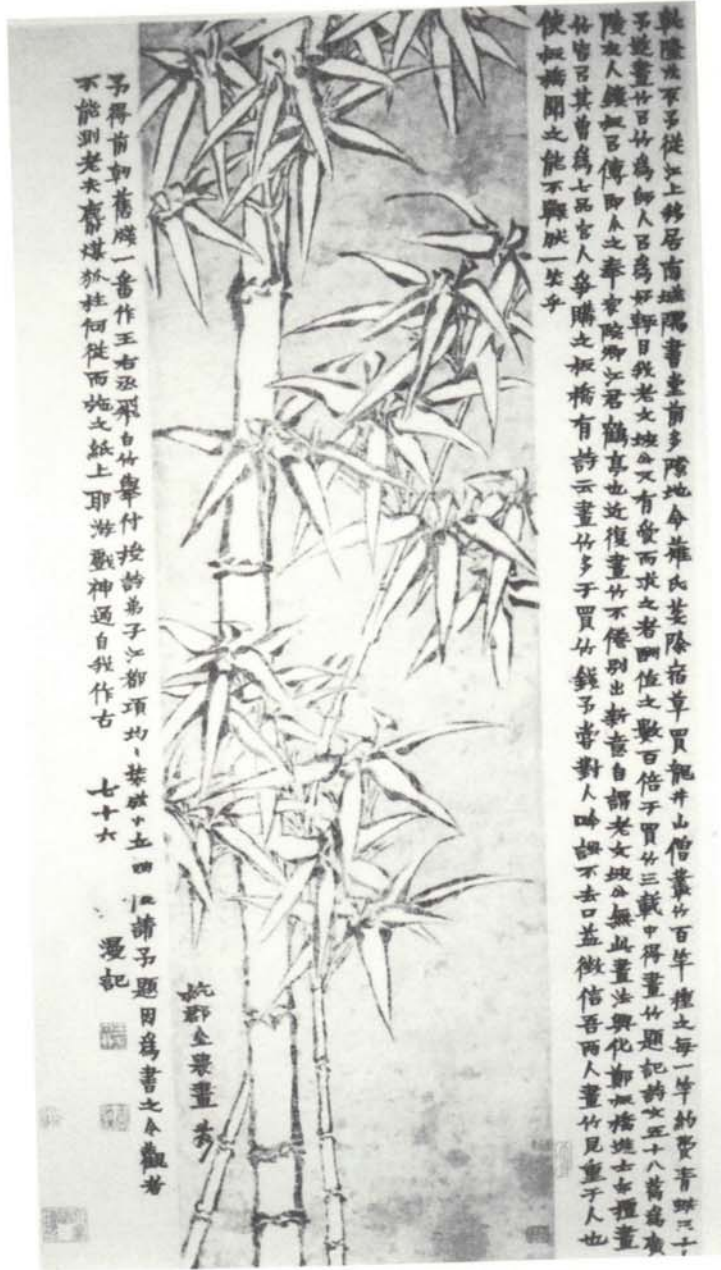 乾隆戊午予從江上移居南城隅書堂前多隙地今雇氏芟除宿草買龍井山僧叢竹百竿種之每一竿約費青蚨三十
予遂畫竹以竹為師人以為好輒目我老文坡公又有愛而求之者酬值之數百倍于買竹三載中得畫竹題記詩文五十八篇為廣
陵友人鏤板以傳即今之奉宸院卿江君鶴亭也近復畫竹不倦別出新意自謂老文坡公無此畫法興化鄭板橋進士亦擅畫
竹皆以其曾為七品官人爭購之板橋有詩云畫竹多于買竹錢予嘗對人吟諷不去口益徵信吾兩人畫竹見重于人也
使板橋聞之能不囅然一笑乎
杭郡金農畫
予得前朝舊牋一番作王右丞飛白竹舉付授詩弟子江都項均均裝
請予題因為書之今觀者
不能測老夫麝煤狐柱何從而施之紙上耶游戲神通自我作古
七十六
漫記